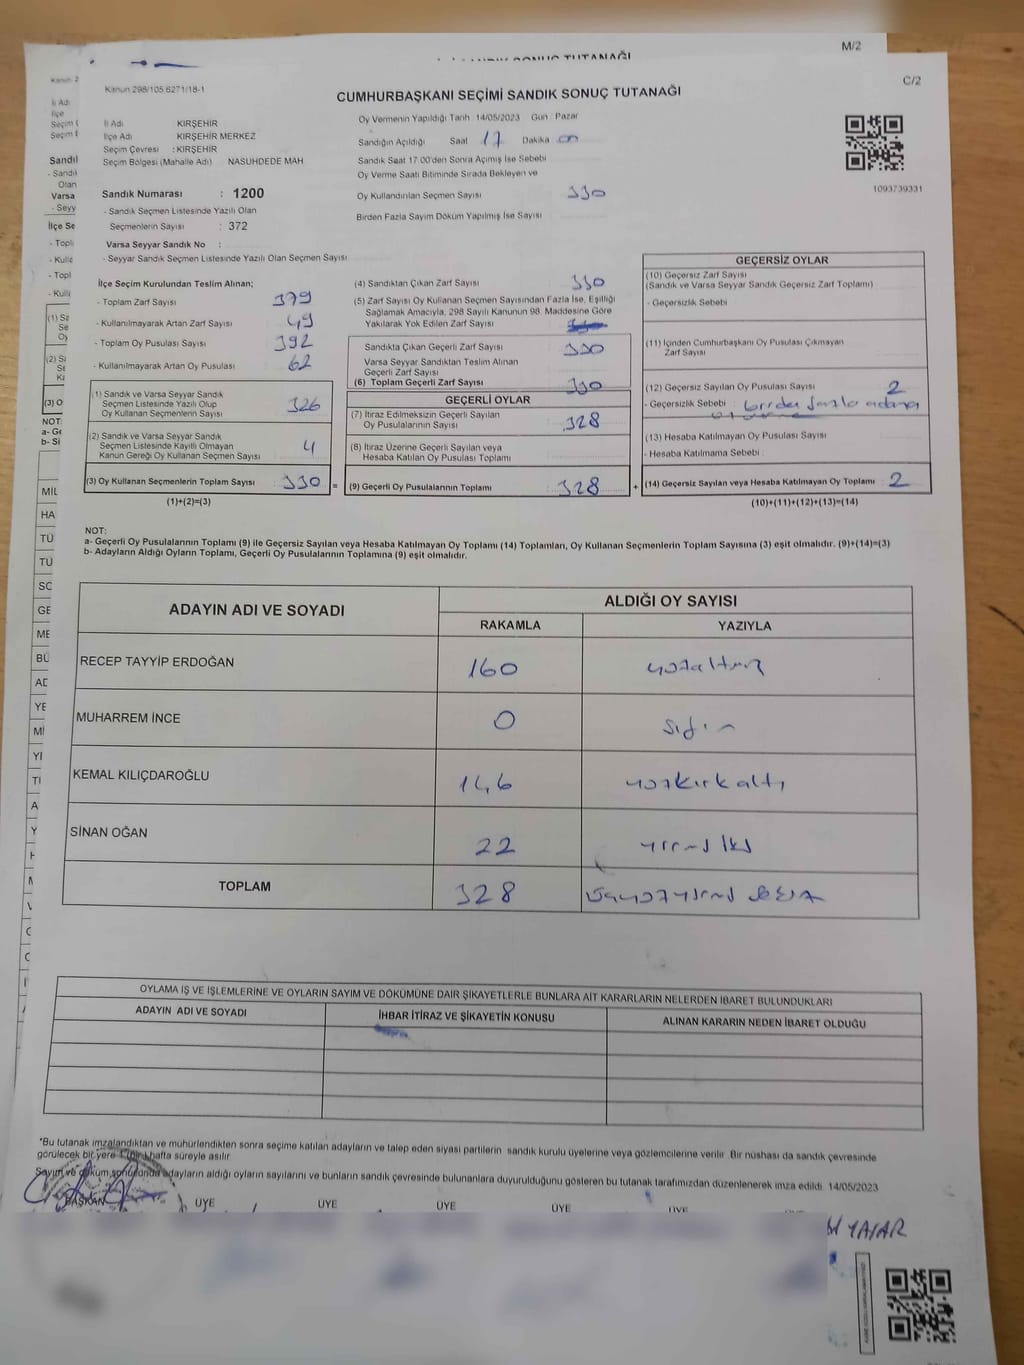 M/2
Kanun 298/105 6271/18-1
C/2
CUMHURBAŞKANI SEÇİMİ SANDIK SONUÇ TUTANAĞI
İl Adı KIRŞEHİR
İlçe Adı KIRŞEHİR MERKEZ
Seçim Çevresi : KIRŞEHİR
Seçim Bölgesi (Mahalle Adı) NASUHDEDE MAH
Sandık Numarası : 1200
- Sandık Seçmen Listesinde Yazılı Olan
Seçmenlerin Sayısı : 372
Varsa Seyyar Sandık No :
- Seyyar Sandık Seçmen Listesinde Yazılı Olan Seçmen Sayısı
Oy Vermenin Yapıldığı Tarih 14/05/2023 Gün Pazar
Sandığın Açıldığı Saat 17 Dakika 00
Sandık Saat 17:00'den Sonra Açılmış İse Sebebi
Oy Verme Saati Bitiminde Sırada Bekleyen ve
Oy Kullandırılan Seçmen Sayısı 330
Birden Fazla Sayım Döküm Yapılmış İse Sayısı
1093739331
İlçe Seçim Kurulundan Teslim Alınan;
- Toplam Zarf Sayısı 379
- Kullanılmayarak Artan Zarf Sayısı 49
- Toplam Oy Pusulası Sayısı 392
- Kullanılmayarak Artan Oy Pusulası 62
(1) Sandık ve Varsa Seyyar Sandık
Seçmen Listesinde Yazılı Olup
Oy Kullanan Seçmenlerin Sayısı 326
(2) Sandık ve Varsa Seyyar Sandık
Seçmen Listesinde Kayıtlı Olmayan
Kanun Gereği Oy Kullanan Seçmen Sayısı 4
(3) Oy Kullanan Seçmenlerin Toplam Sayısı 330 =
(1)+(2)=(3)
(4) Sandıktan Çıkan Zarf Sayısı 330
(5) Zarf Sayısı Oy Kullanan Seçmen Sayısından Fazla İse, Eşitliği
Sağlamak Amacıyla, 298 Sayılı Kanunun 98. Maddesine Göre
Yakılarak Yok Edilen Zarf Sayısı
Sandıkta Çıkan Geçerli Zarf Sayısı 330
Varsa Seyyar Sandıktan Teslim Alınan
Geçerli Zarf Sayısı
(6) Toplam Geçerli Zarf Sayısı 330
GEÇERLİ OYLAR
(7) İtiraz Edilmeksizin Geçerli Sayılan
Oy Pusulalarının Sayısı 328
(8) İtiraz Üzerine Geçerli Sayılan veya
Hesaba Katılan Oy Pusulası Toplamı
(9) Geçerli Oy Pusulalarının Toplamı 328 +
GEÇERSİZ OYLAR
(10) Geçersiz Zarf Sayısı
(Sandık ve Varsa Seyyar Sandık Geçersiz Zarf Toplamı)
- Geçersizlik Sebebi
(11) İçinden Cumhurbaşkanı Oy Pusulası Çıkmayan
Zarf Sayısı
(12) Geçersiz Sayılan Oy Pusulası Sayısı 2
- Geçersizlik Sebebi : birden fazla adaya
(13) Hesaba Katılmayan Oy Pusulası Sayısı
- Hesaba Katılmama Sebebi :
(14) Geçersiz Sayılan veya Hesaba Katılmayan Oy Toplamı : 2
(10)+(11)+(12)+(13)=(14)
NOT:
a- Geçerli Oy Pusulalarının Toplamı (9) ile Geçersiz Sayılan veya Hesaba Katılmayan Oy Toplamı (14) Toplamları, Oy Kullanan Seçmenlerin Toplam Sayısına (3) eşit olmalıdır. (9)+(14)=(3)
b- Adayların Aldığı Oyların Toplamı, Geçerli Oy Pusulalarının Toplamına (9) eşit olmalıdır.
ADAYIN ADI VE SOYADI ALDIĞI OY SAYISI
RAKAMLA YAZIYLA
RECEP TAYYİP ERDOĞAN 160 yüzaltmış
MUHARREM İNCE 0 sıfır
KEMAL KILIÇDAROĞLU 146 yüzkırkaltı
SİNAN OĞAN 22 yirmi iki
TOPLAM 328 üçyüzyirmi sekiz
OYLAMA İŞ VE İŞLEMLERİNE VE OYLARIN SAYIM VE DÖKÜMÜNE DAİR ŞİKAYETLERLE BUNLARA AİT KARARLARIN NELERDEN İBARET BULUNDUKLARI
ADAYIN ADI VE SOYADI İHBAR İTİRAZ VE ŞİKAYETİN KONUSU ALINAN KARARIN NEDEN İBARET OLDUĞU
*Bu tutanak imzalandıktan ve mühürlendikten sonra seçime katılan adayların ve talep eden siyasi partilerin sandık kurulu üyelerine veya gözlemcilerine verilir. Bir nüshası da sandık çevresinde
görülecek bir yere 1 bir hafta süreyle asılır
Sayım ve döküm sonucunda adayların aldığı oyların sayılarını ve bunların sandık çevresinde bulunanlara duyurulduğunu gösteren bu tutanak tarafımızdan düzenlenerek imza edildi 14/05/2023
BAŞKAN ÜYE ÜYE ÜYE ÜYE ÜYE